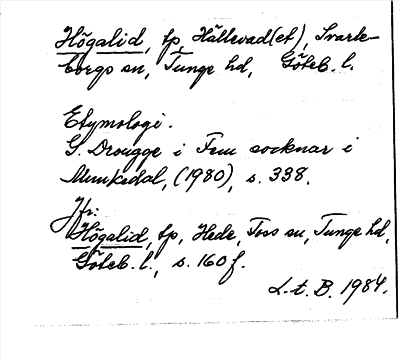 Högalid, tp, Hällevad(et), Svarte-
borgs sn, Tunge hd, Göteb. l.
Etymologi.
G. Drougge i Fem socknar i
Munkedal, (1980), s. 338.
Jfr:
Högalid, tp, Hede, Foss sn, Tunge hd,
Göteb. l., s. 160 f.
L.t. B. 1984.